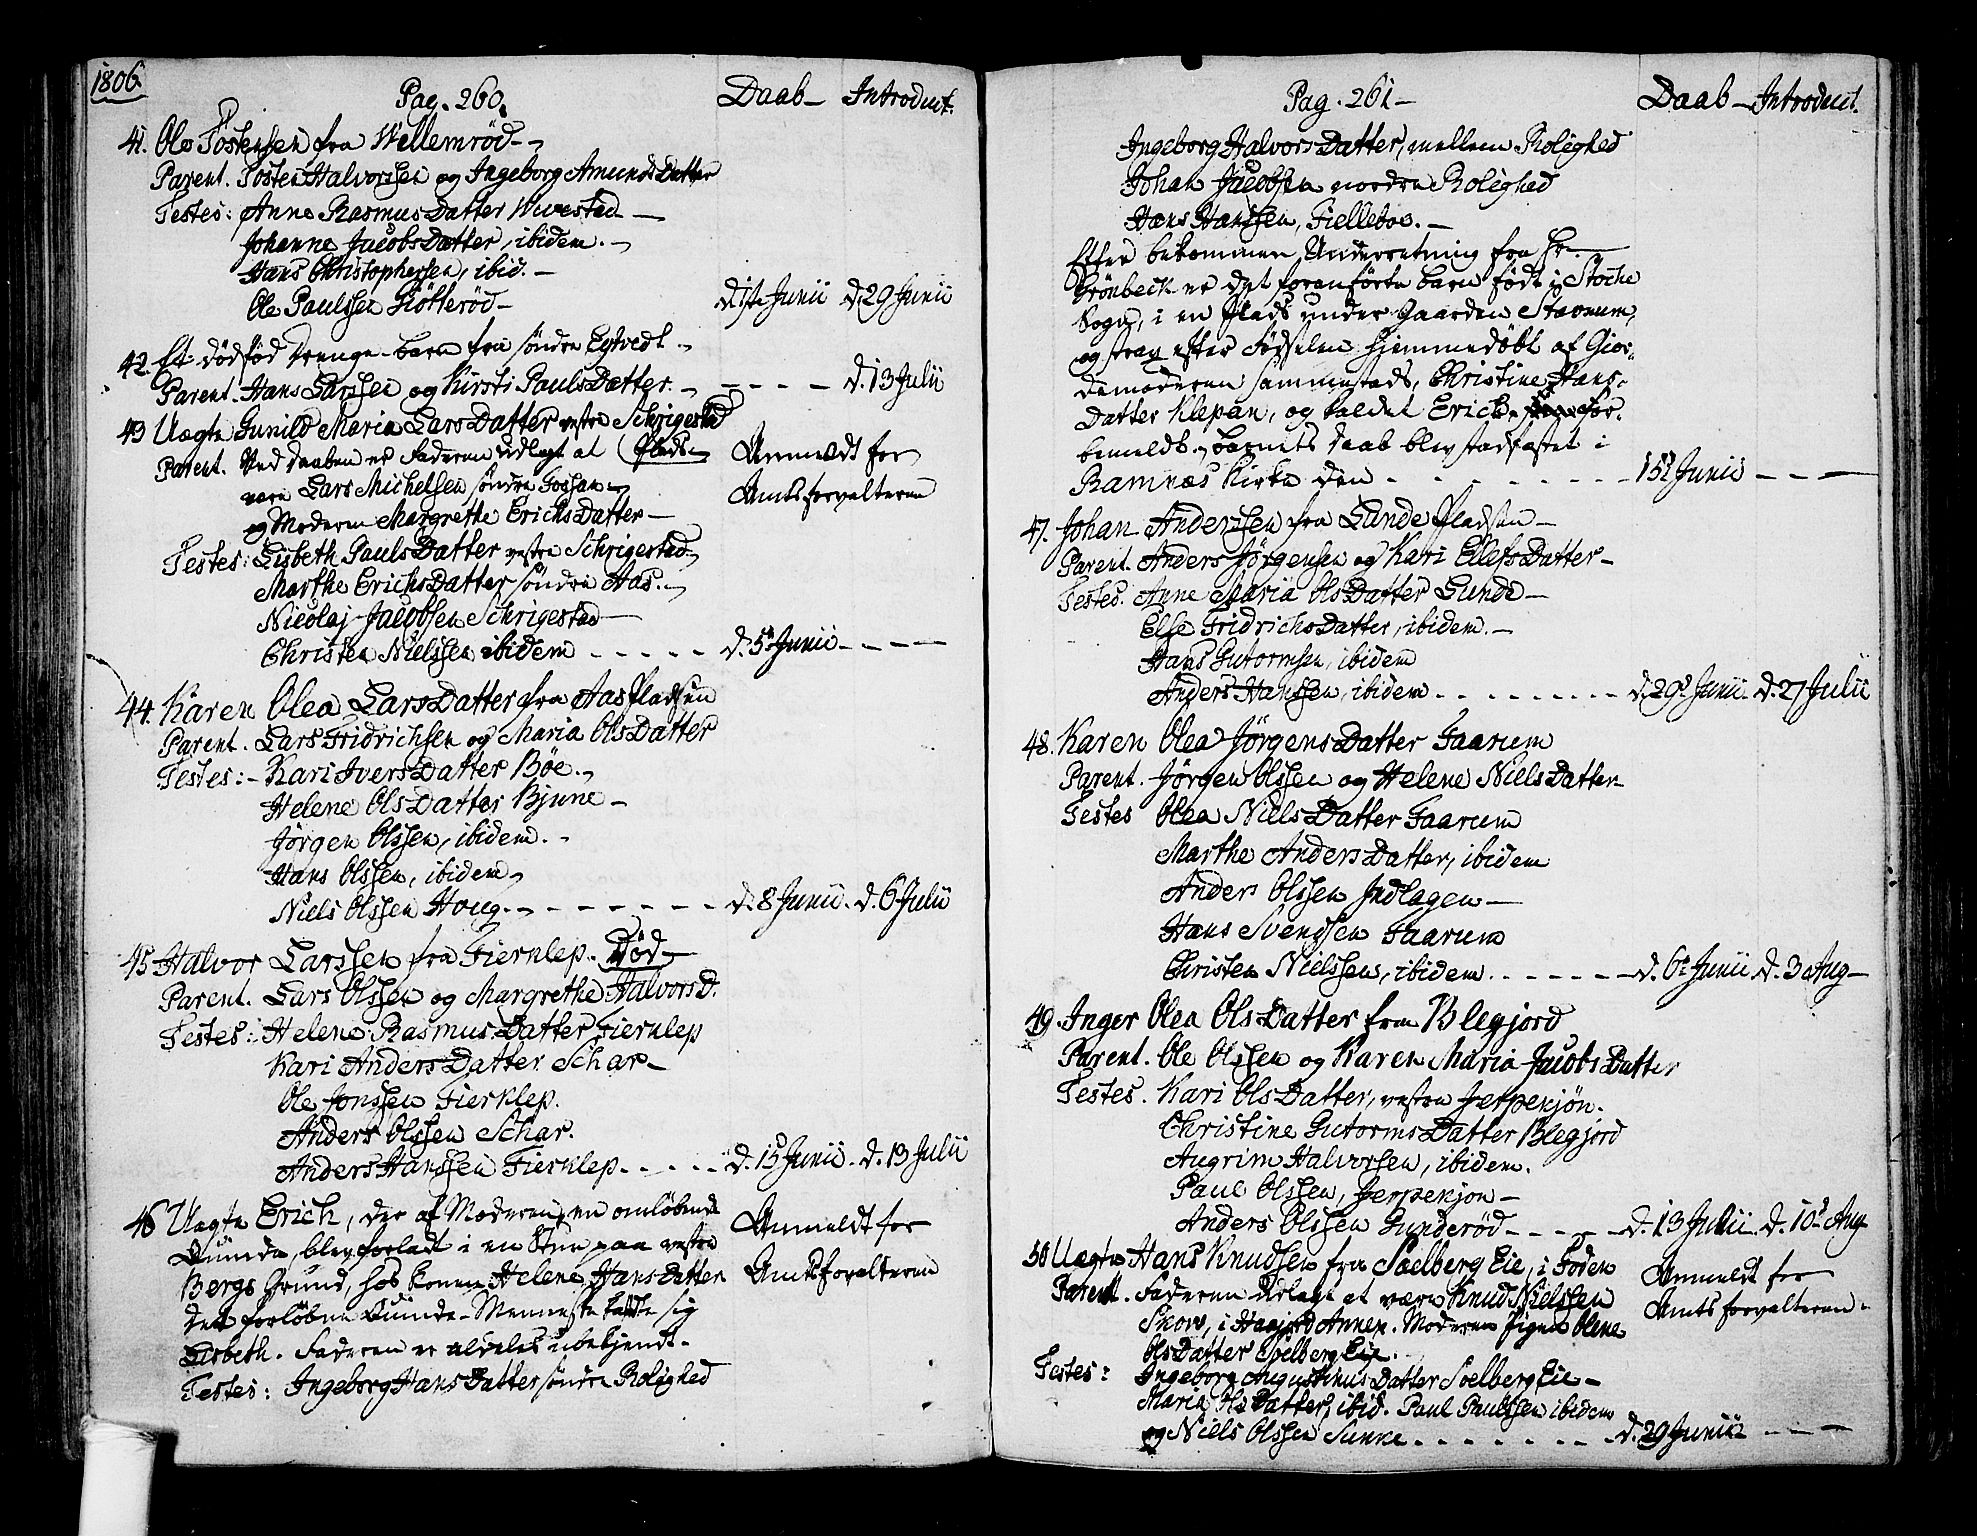 1806.
Pag. 260. Daab – Introduct.
41. Ole Tostensen fra Wellemröd –
Parent. Tosten Halvorssen og Ingeborg Amunds Datter
Testes: Anne Rasmus Datter Wivestad –
Johanne Jacobs Datter, ibidem. –
Hans Christophersen, ibid. –
Ole Paulssen Giötteröd – d. 1ste Junii d. 29 Junii
42. Et dödfød Drenge-barn fra söndre Egtvedt –
Parent. Hans Larssen og Kirsti Pauls Datter. – – – – – d. 13 Julii
43 Uægte Gunild Maria Lars Datter vestre Schrigestad
Parent. Ved Daaben er Faderen udlagt at Plads – Anmeldt for
være Lars Michelsen söndre Gossan – Amtsforvalteren
og Moderen Margrethe Erichs Datter –
Testes: Lisbeth Pauls Datter vestre Schrigestad –
Marthe Erichs Datter söndre Aas. –
Nicolaj Jacobsen Schrigestad
Christen Nielssen ibidem – – – – – d. 5t Junii – – – –
44. Karen Olea Lars Datter fra Aas Pladsen
Parent. Lars Fridrichsen og Maria Ols Datter
Testes: – Kari Ivers Datter Bøe. –
Helene Ols Datter Bjune –
Jørgen Olssen, ibidem. –
Hans Olssen, ibidem –
Niels Olssen Houg. – – – – – – – d. 8 Junii. d. 6 Julii
45 Halvor Larssen fra Fierklep. Død –
Parent. Lars Olssen og Margrethe Halvors D.
Testes: Helene Rasmus Datter Fierklep
Kari Anders Datter Schar –
Ole Jonssen Fierklep.
Anders Olssen Schar.
Anders Hanssen Fierklep. – – – – d. 15 Junii. d. 13 Julii
46 Uægte Erich, der af Moderen, en omløbende Anmeldt for
Qvinde, blev forladt i en Stue paa vestre
Bergs Grund, hos konen Helene Hans Datter Amtsforvalteren
den forløbne Qvinde-Menneske kaldte sig
Lisbeth. Faderen er aldeles ubekjendt. –
Testes: Ingeborg Hans Datter söndre Rolighed
Pag. 261 – Daab – Introduct.
Ingeborg Halvors Datter, mellem Rolighed
Johan Jacobsen nordre Rolighed
Hans Hanssen, Fielleboe. –
Efter bekommen Underretning fra Hr
Grönbeck er det foranførte barn født i Stoche
Sogn, i en Plads under Gaarden Stavnum,
og strax efter Fødselen hjemmedöbt af Gior-
demoderen sammestads, Christine Hans-
Datter Klepan, og kaldet Erich. for-
bemeldte barnets Daab blev stadfæstet i
Ramnes Kirke den – – – – – – – 15 Junii – – –
47. Johan Anderssen fra Lunde Pladsen –
Parent. Anders Jörgensen og Kari Ellefs Datter –
Testes. Anne Maria Ols Datter Lunde –
Else Fridrichs Datter, ibidem. –
Hans Gutormsen, ibidem
Anders Hanssen, ibidem – – – – – – – d. 29 Junii. d. 27 Julii
48. Karen Olea Jörgens Datter Faarum
Parent. Jörgen Olssen og Helene Niels Datter
Testes Olea Niels Datter Faarum
Marthe Anders Datter, ibidem
Anders Olssen Indlagen –
Hans Svendssen Faarum
Christen Nielssen, ibidem. – – – – – d. 6t Junii d. 3 Aug –
49. Inger Olea Ols Datter fra Blegjord
Parent. Ole Olssen og Karen Maria Jacobs Datter
Testes. Kari Ols Datter, vestre Jerpekjön.
Christine Gutorms Datter Blegjord
Augrim Halvorsen, ibidem.
Paul Olssen, Jerpekjon –
Anders Olssen Gunderöd – – – – d. 13 Julii d. 10d Aug
50 Uægte Hans Knudsen fra Soelberg Eie, i Foden Anmeldt for
Parent. Faderen udlagt at være Knud Nielssen Amtsforvalteren –
Skov, i Haajord Annex. Moderen Pigen Olene
Ols Datter Soelberg Eie.
Testes: Ingeborg Augustinus Datter Soelberg Eie –
Maria Ols Datter, ibid. Paul Paulssen ibidem
og Niels Olssen Sunke – – – – – – – d. 29 Junii – – –